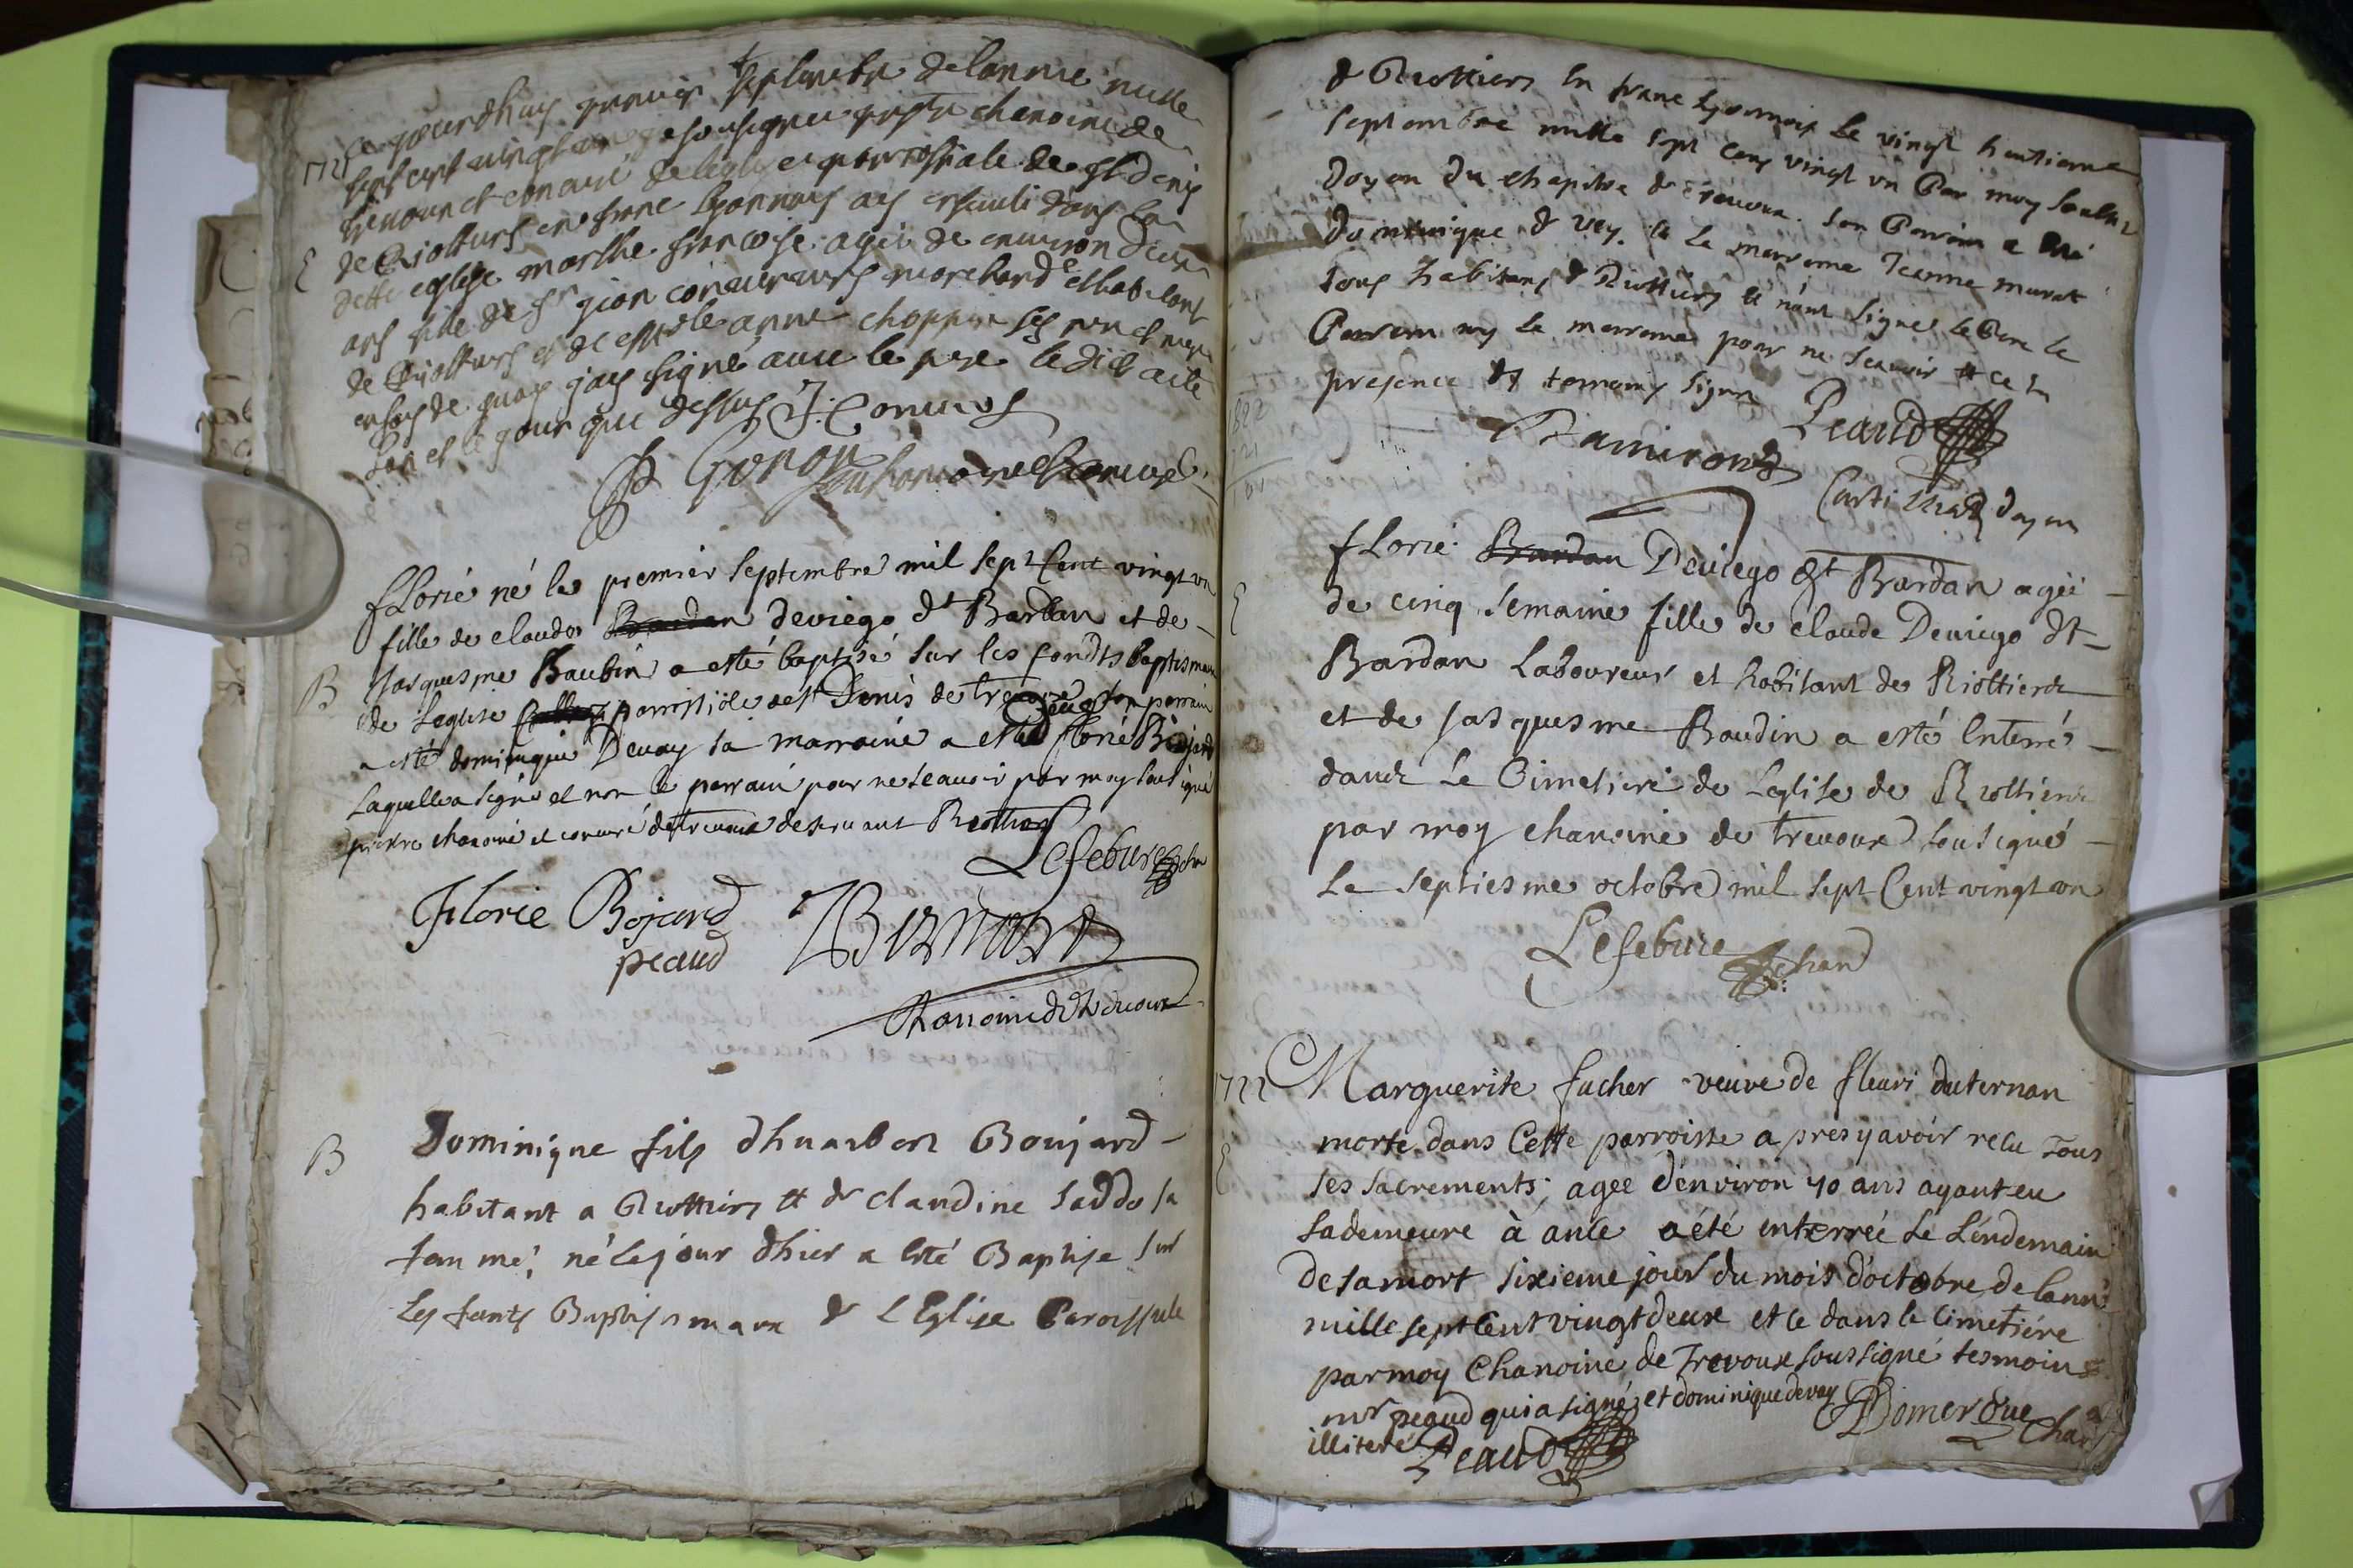 ce jourdhuy premier septembre de lannee mille
1721
sept cent vingt un je soussigné chanoine de
trevoux et concuré de leglise parrossiale de st Denis
E
de Riottiers en franc lyonnois ay enseveli dans la
dette eglise marthe francoise agée de environ deux
ans fille de sr jean marchand et habitant
de Riottiers et de anne choppin ses pere et mere
en foy de quoy jay signé avec le pere le dict acte
lan et le jour que dessus
florie né le premier septembre mil sept Cent vingt un
fille de claude Bardan deviego dt Bardan et de
B
Jacquesme Baudin a esté baptisé sur les fondts baptismaux
de Leglise parroissiale de st Denis de trevoux son parrain
a esté dominique Devay sa marraine a esté florie Bojard
Laquelle a signé et non le parrain pour ne scavoir par moy soussigné
prestre chanoine et concuré de trevoux deservant Riottiers
Lefebure
Florie Bojard
peaud Bernard
Chanoine de trevoux
B
Dominique fils dhumbert Boujard
habitant a Riottiers et de claudine saddo sa
femme, né le jour dhier a esté Baptise sur
Les fonts Baptismaux de L Eglise Paroissiale
de Riottiers en franc Lyonnois Le vingt huitieme
septembre mille sept cens vingt un Par moy soubsné
Doyen Du chapitre de Trevoux. son Parrain a esté
Dominique de vey. et la marraine Jeanne murat
tous habitans de Riottiers et n'ont signé Le Pere le
Parrain ny La marraine pour ne scavoir et ce en
presence des temoins signes
Peaud
doyen
florie Bardan Deviego dt Bardan agée
E
de cinq semaine fille de claude Deviego dt
Bardan Laboureur et habitant de Riottiers
et de Jacquesme Baudin a esté Enterré
dans Le Cimetiere de Leglise de Riottiers
par moy chanoine de trevoux soussigné
Le septiesme octobre mil sept Cent vingt un
Lefebure chan
1722
Marguerite fucher veuve de fleuri duternan
morte dans Cette parroisse apres y avoir recu Tous
E
ses sacrements; agée d'environ 40 ans ayant eu
sa demeure à anse a été enterrée Le Lendemain
de sa mort sixieme jour du mois d'octobre de lanné
mille sept Cent vingt deux et ce dans le Cimetiére
par moy Chanoine de Trevoux soussigné tesmoins
mr peaud qui a signé, et dominique devay
illiteré Peaud Domergue Chan